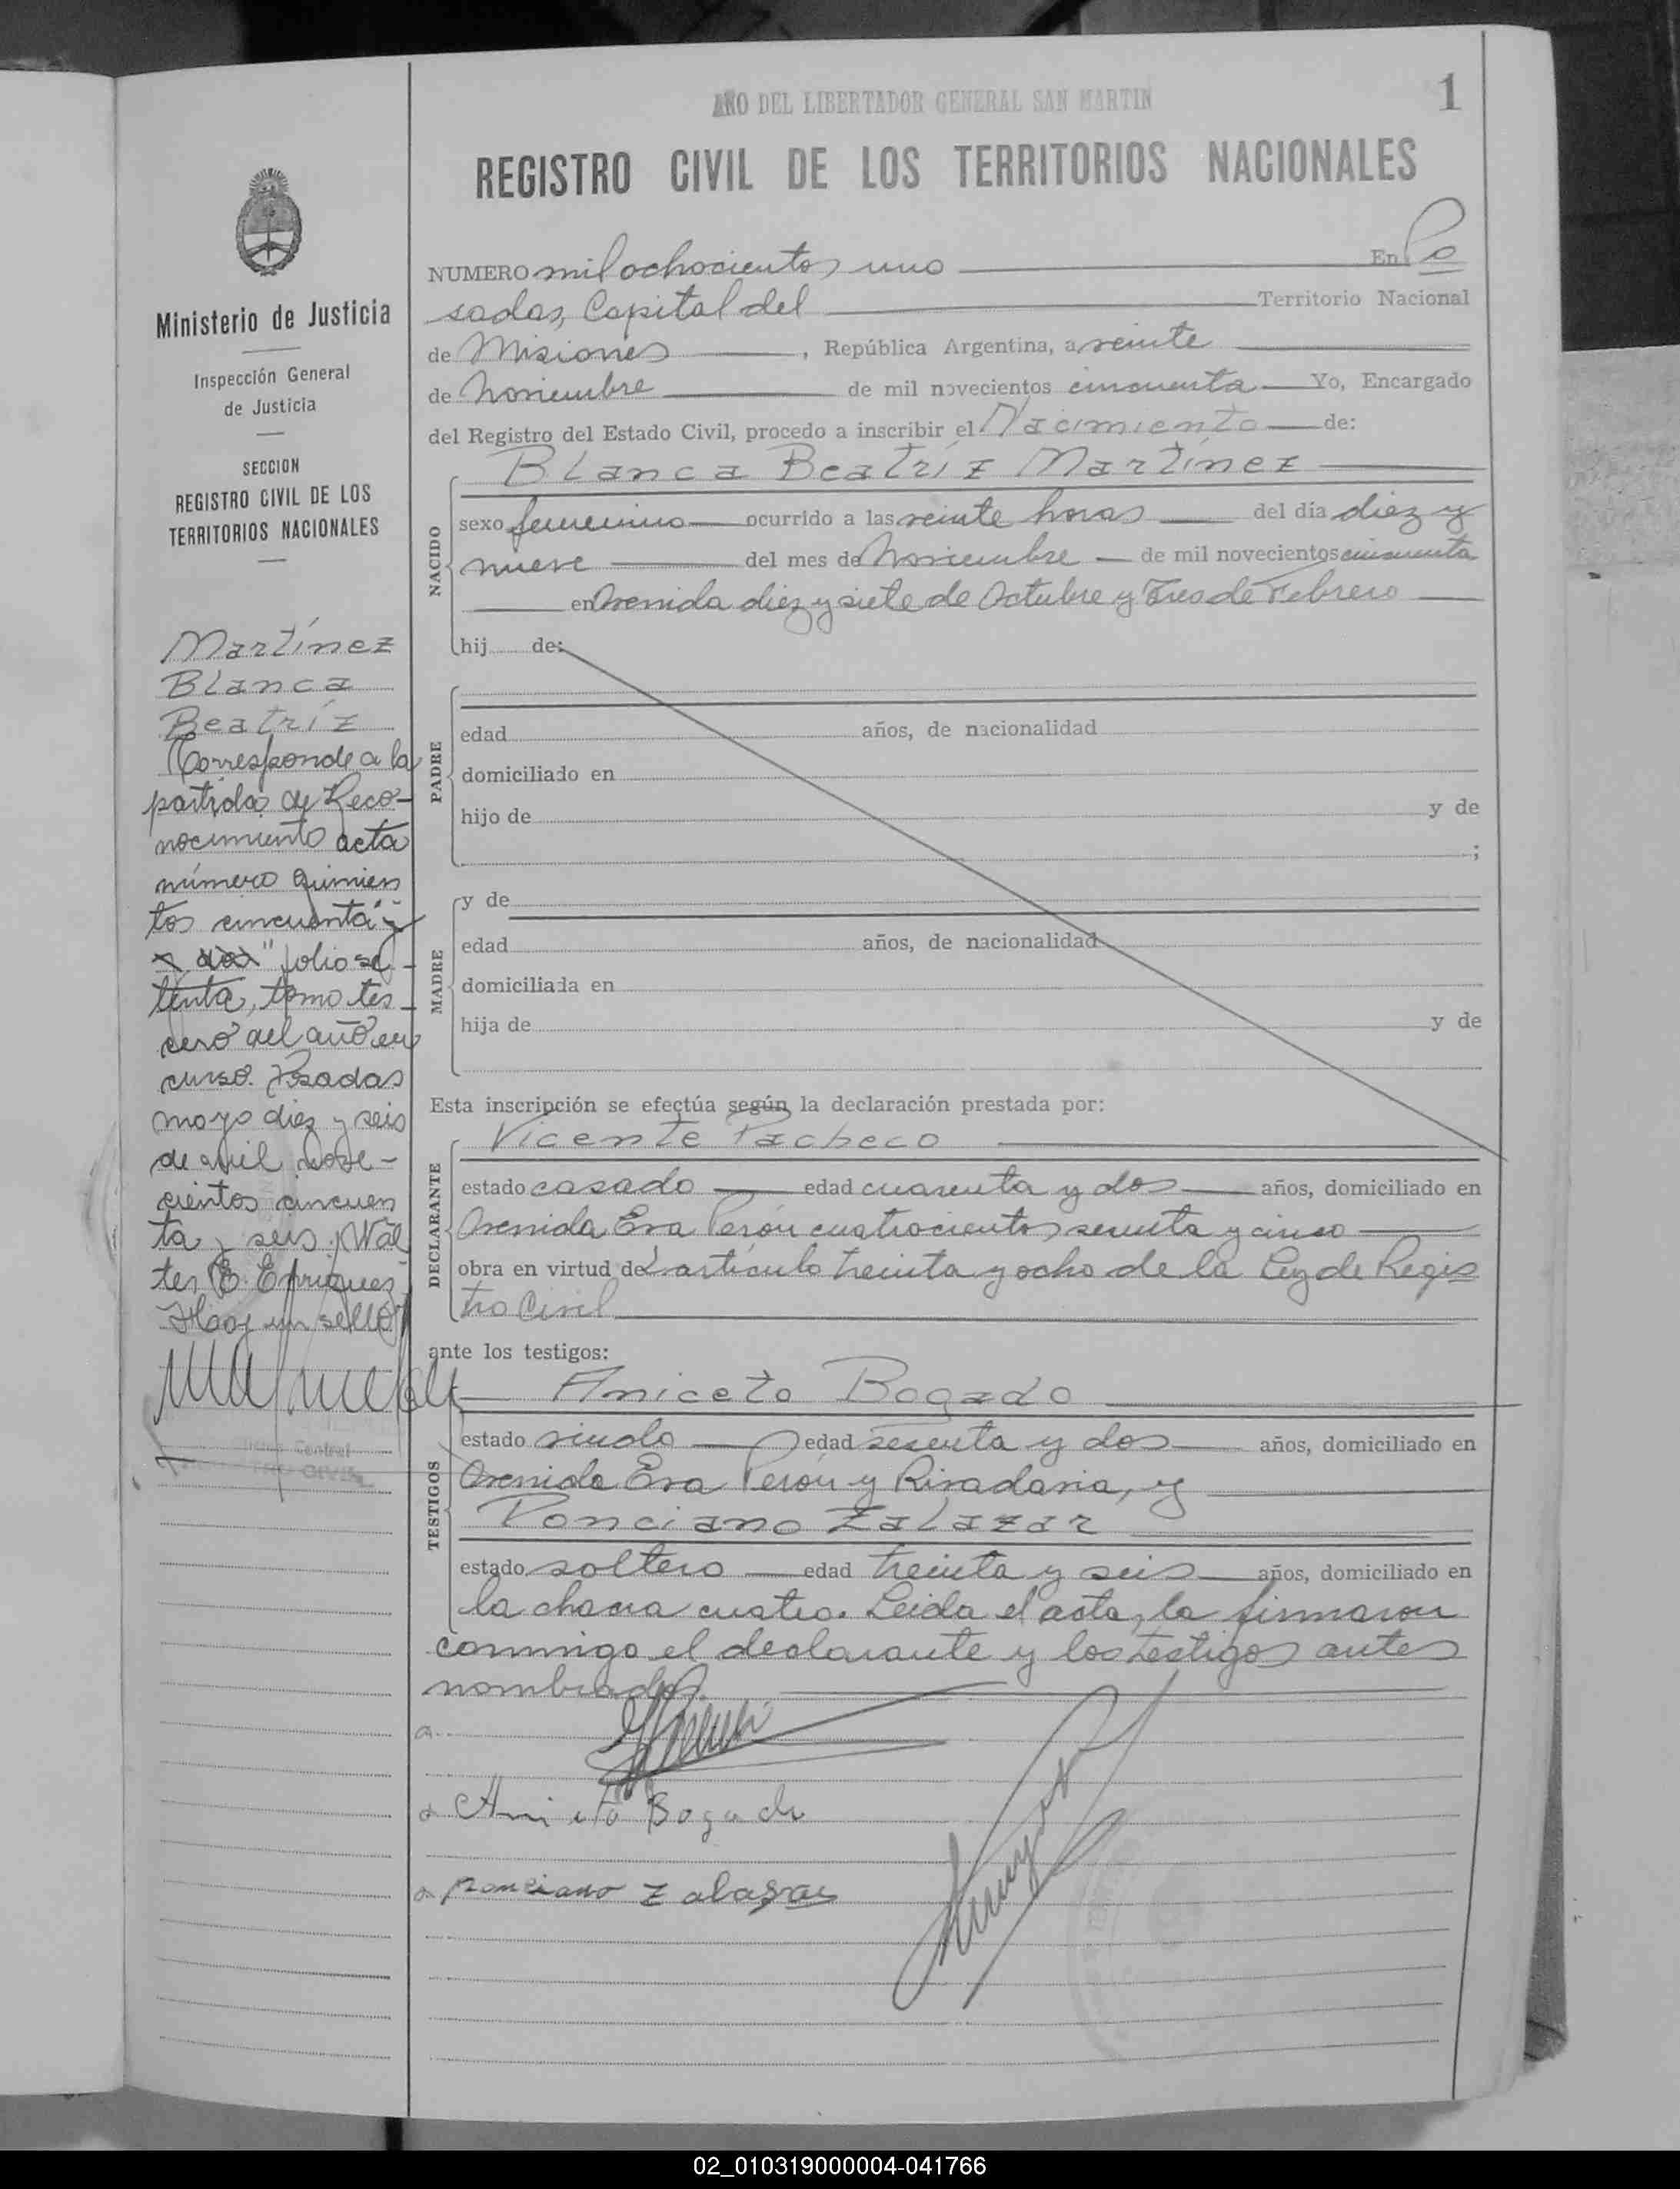 AÑO DEL LIBERTADOR GENERAL SAN MARTIN
1
REGISTRO CIVIL DE LOS TERRITORIOS NACIONALES
Ministerio de Justicia
Inspección General
de Justicia
SECCION
REGISTRO CIVIL DE LOS
TERRITORIOS NACIONALES
Martínez
Blanca
Beatríz
Corresponde a la
partida de Reco-
nocimiento acta
número quinien
tos cincuenta "y
folio se-
tenta, tomo ter-
cero del año en
curso. Posadas
mayo diez y seis
de mil nove-
cientos cincuen
ta y seis. Wal
ter E. Enriquez
Hay un sello
NUMERO mil ochocientos uno En Po
sadas, Capital del Territorio Nacional
de Misiones, República Argentina, a veinte
de Noviembre de mil novecientos cincuenta Yo, Encargado
del Registro del Estado Civil, procedo a inscribir el Nacimiento de:
Blanca Beatríz Martínez
NACIDO
sexo femenino ocurrido a las veinte horas del día diez y
nueve del mes de Noviembre de mil novecientos cincuenta
en Avenida diez y siete de Octubre y Tres de Febrero
hij de:
PADRE
edad años, de nacionalidad
domiciliado en
hijo de y de
;
MADRE
y de
edad años, de nacionalidad
domiciliada en
hija de y de
Esta inscripción se efectúa según la declaración prestada por:
DECLARANTE
Vicente Pacheco
estado casado edad cuarenta y dos años, domiciliado en
Avenida Eva Perón cuatrocientos sesenta y cinco
obra en virtud del artículo treinta y ocho de la Ley de Regis
tro Civil
ante los testigos:
TESTIGOS
Aniceto Bogado
estado viudo edad sesenta y dos años, domiciliado en
Avenida Eva Perón y Rivadavia, y
Ponciano Zalazar
estado soltero edad treinta y seis años, domiciliado en
la chacra cuatro. Leida el acta, la firmaron
conmigo el declarante y los testigos antes
nombrados.
a
a Aniceto Bogado
a Ponciano Zalazar
02_010319000004-041766